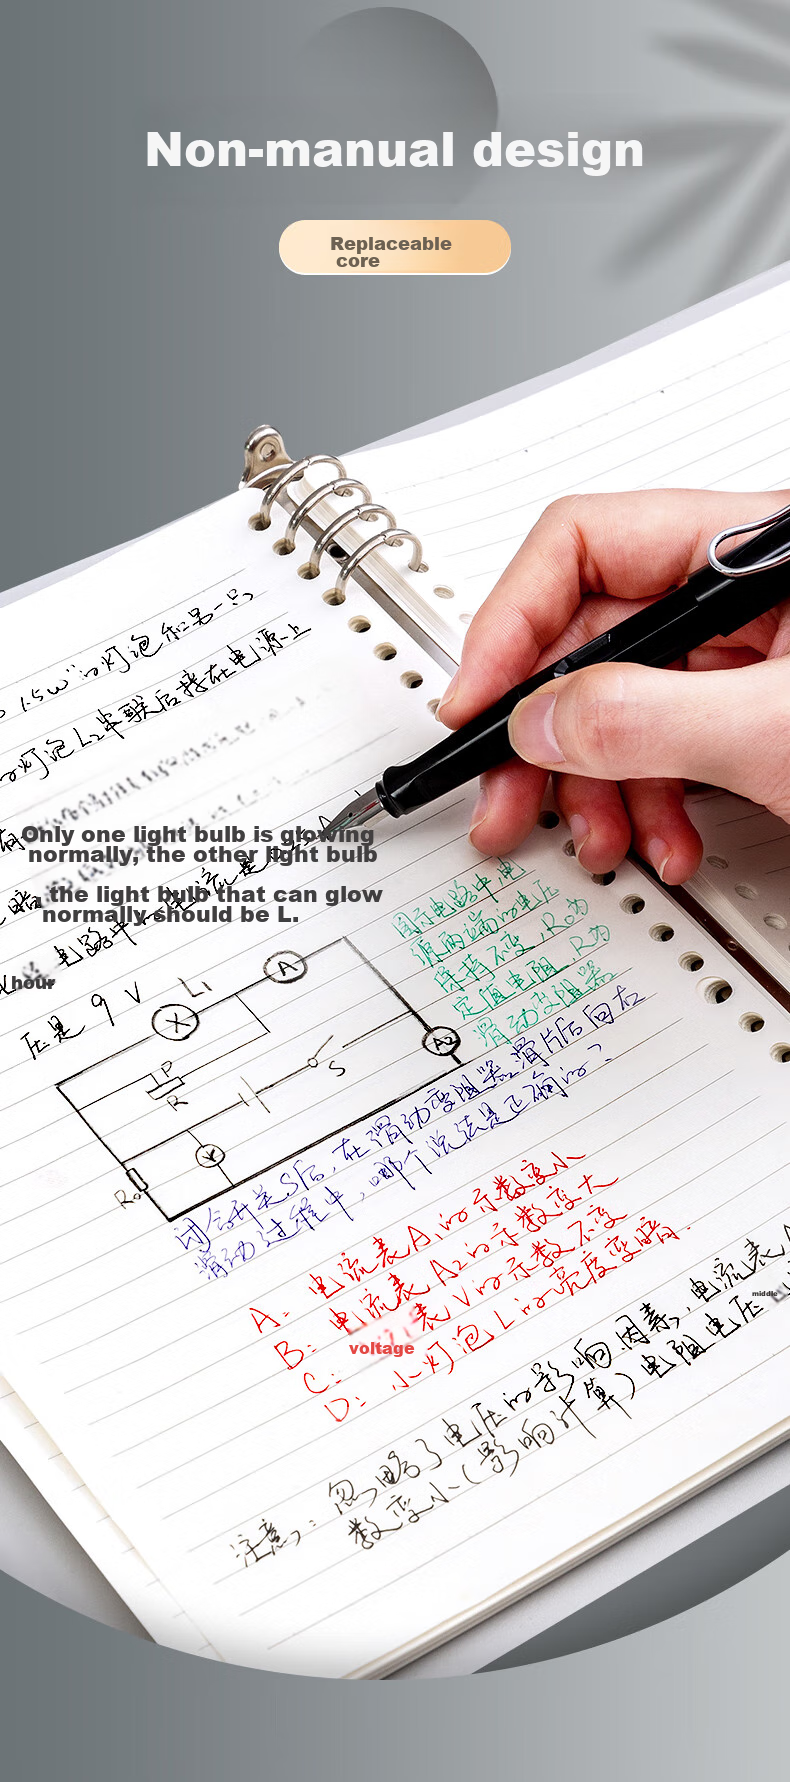 Non-manual design
Replaceable
core
1.5W"的灯泡和另一只
的灯泡L2串联后接在电源上
Only one light bulb is glowing
normally, the other light bulb
the light bulb that can glow
normally should be L.
hour
压是 9 V
L1
A
X
P
R
S
A2
V
R0
图示电路中,电
源两端的电压
保持不变,R0为
定值电阻,R为
滑动变阻器
闭合开关S后,在滑动变阻器滑片P向右
滑动过程中,哪个说法是正确的?
A: 电流表A1的示数变小
B: 电流表A2的示数变大
C: 表V的示数不变
voltage
D: 小灯泡L的亮度变暗.
middle
注意: 忽略了电压的影响因素,电流表
数变小(影响计算)电阻电压